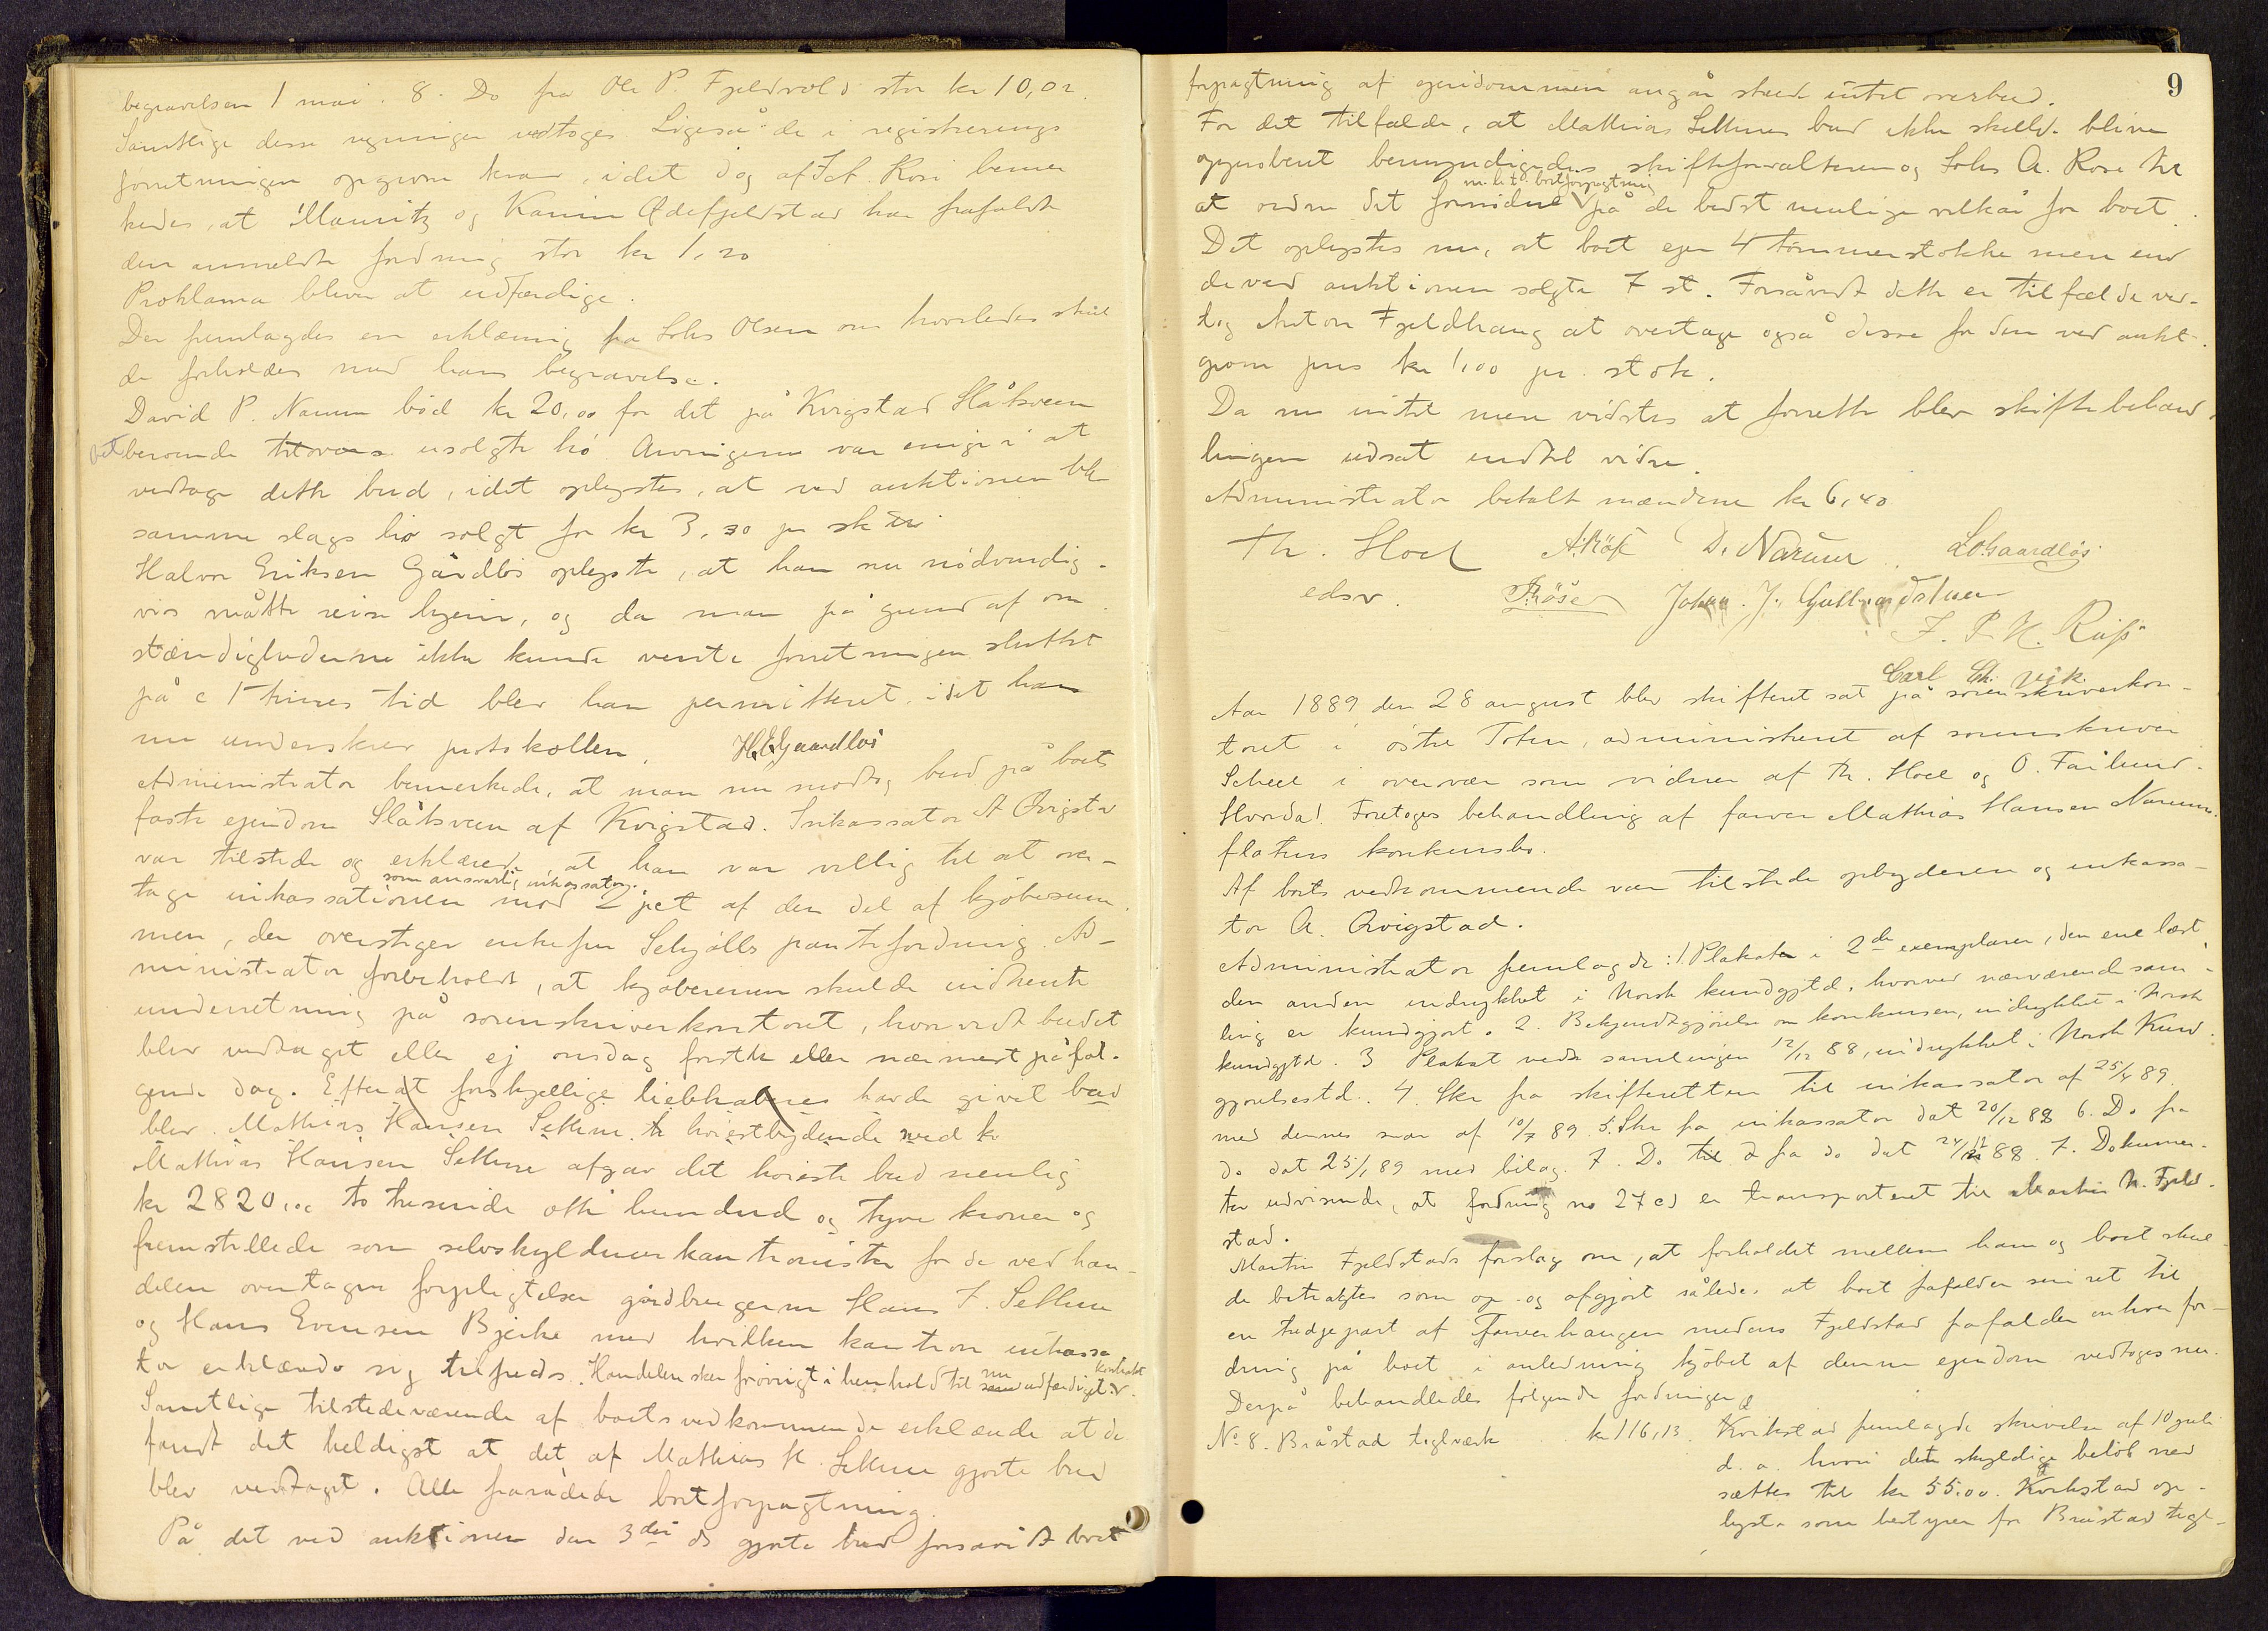 begravelsen 1 mai. 8. Do fra Ole P. Fjeldvold stor kr 10,02.
Samtlige disse regninger vedtoges Ligeså de i registrerings
forretningen opgivne krav, idet dog af Joh. Rosi bemær
kedes, at Mauritz og Karin Ødefjeldstad har frafaldt
den anmeldte fordring stor kr 1,20
Proklama bliver at udfærdige.
Der fremlagdes en erklæring fra Lohs Olsen om hvorledes skul
de forholdes med hans begravelse.
David P. Narum bød kr 20,00 for det på Kvigstad Slåtsveen
beroende usolgte hö Arvingerne var enige i at
vedtage dette bud, idet oplystes, at ved auktionen blev
samme slags hö solgt for kr 3,30 pr sk
Halvor Eriksen Gårdlös oplyste, at han nu nödvendig-
vis måtte reise hjem, og da man på grund af om
stændighederne ikke kunde vente forretningen sluttet
på c 1 times tid blev han permitteret, idet han
nu underskrev protokollen. H.E. Gaardlös
Administrator bemerkede, at man nu modtog bud på boets
faste ejendom Slåtsveen af Kvigstad. Inkassator A Qvigstad
var tilstede og erklærede, at han var villig til at over-
som ansvarlig inkassator
tage inkassationen mod 2 pct af den del af kjöbesum
men, der overstiger enkefru Schjölls pantefordring. Ad-
ministrator forbeholdt, at kjöberenen skulde indhente
underretning på sorenskriverkontoret, hvorvidt budet
blev vedtaget eller ej onsdag förstk eller nærmest påföl-
gende dag. Efterat forskjellige liebhabere havde givet bud
blev Mathias Hansen Settene höiestbydende med kr
Mathias Hansen Settene afgav det höieste bud nemlig
kr 2820,00 to tusinde otte hundred og tyve kroner og
fremstillede som selvskyldnerkautionister for de ved han-
delen overtagne forpligtelser gårdbrugerne Hans J. Settene
og Hans Evensen Bjerke med hvilken kaution inkassa
tor erklærede sig tilfreds. Handelen sker forövrigt i henhold til nu udfærdiget kontrakt.
Samtlige tilstedeværende af boets vedkommende erklærede at de
fandt det heldigst at det af Mathias H. Settene gjorte bud
blev vedtaget. Alle frarådede bortforpagtning.
På det ved auktionen den 3die ds gjorte bud forsåvidt bort
9
forpagtning af ejendommen angår skede intet overbud.
For det tilfælde, at Mathias Settenes bud ikke skulde blive
approberet bemyndigedes skifteforvalteren og Lohs A. Rose til
m.h.t. bortforpagtning
at ordne det fornödne på de bedst mulige vilkår for boet.
Det oplystes nu, at boet ejer 4 tömmerstokke mere end
de ved auktionen solgte 7 st. Forsåvidt dette er tilfælde ved-
tog Anton Fjeldhaug at overtage også disse for den ved aukt.
givne pris kr 1,00 pr. stok.
Da nu intet mere vidstes at forrette blev skiftebehand-
lingen udsat indtil videre.
Administrator betalt mændene kr 6,40
Th. Hoel A. Röse D. Narum. L. O. Gaardlös
edsv. Röse Johan. J. Gullbrandstuen
J. P. H. Röise
Carl Ch. Vik.
Aar 1889 den 28 august blev skifteret sat på sorenskriverkon-
toret i östre Toten, administreret af sorenskriver
Scheel i overvær som vidner af Th. Hoel og O. Farlund.
Hvorda! Foretoges behandling af farver Mathias Hansen Narums-
flatens konkursbo.
Af boets vedkommende var tilstede opbyderen og inkassa-
tor A. Qvigstad.
Administrator fremlagde: 1 Plakater i 2de exemplarer, den ene læst,
den anden indrykket i Norsk kundgjtd. hvorved nærværende sam-
ling er kundgjort. 2. Bekjendtgjörelse om konkursen, indrykket i Norsk
kundgjtd. 3 Plakat vedr samlingen 12/12 88, indrykket i Norsk Kund-
gjörelsestd. 4. Skr fra skifteretten til inkassator af 25/4 89.
med dennes svar af 10/7 89. 5. Skr fra inkassator dat 20/12 88 6. Do fra
do dat 25/1 89 med bilag. 7. Do fra do dat 24/12 88. 7. Dokumen-
ter udvisende, at fordring no 27 cd er transporteret til Martin N. Fjeld-
stad.
Martin Fjeldstads forslag om, at forholdet mellem ham og boet skul-
de betragtes som op- og afgjort således at boet frafalder sin ret til
en tredjepart af Farverhaugen medens Fjeldstad frafalder enhver for-
dring på boet i anledning kjöbet af denne ejendom vedtoges nu.
Derpå behandledes fölgende fordringer
No 8. Bråstad teglværk kr 116,13. Kvikstad fremlagde skrivelse af 10 juli
d. a. hvori det skyldige belöb ned
sættes til kr 55.00. Kvikstad op-
lyste som bestyrer for Bråstad tegl-